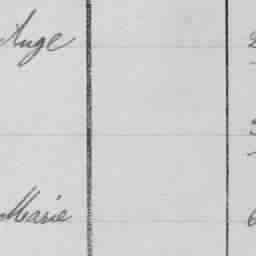 Ange
Marie